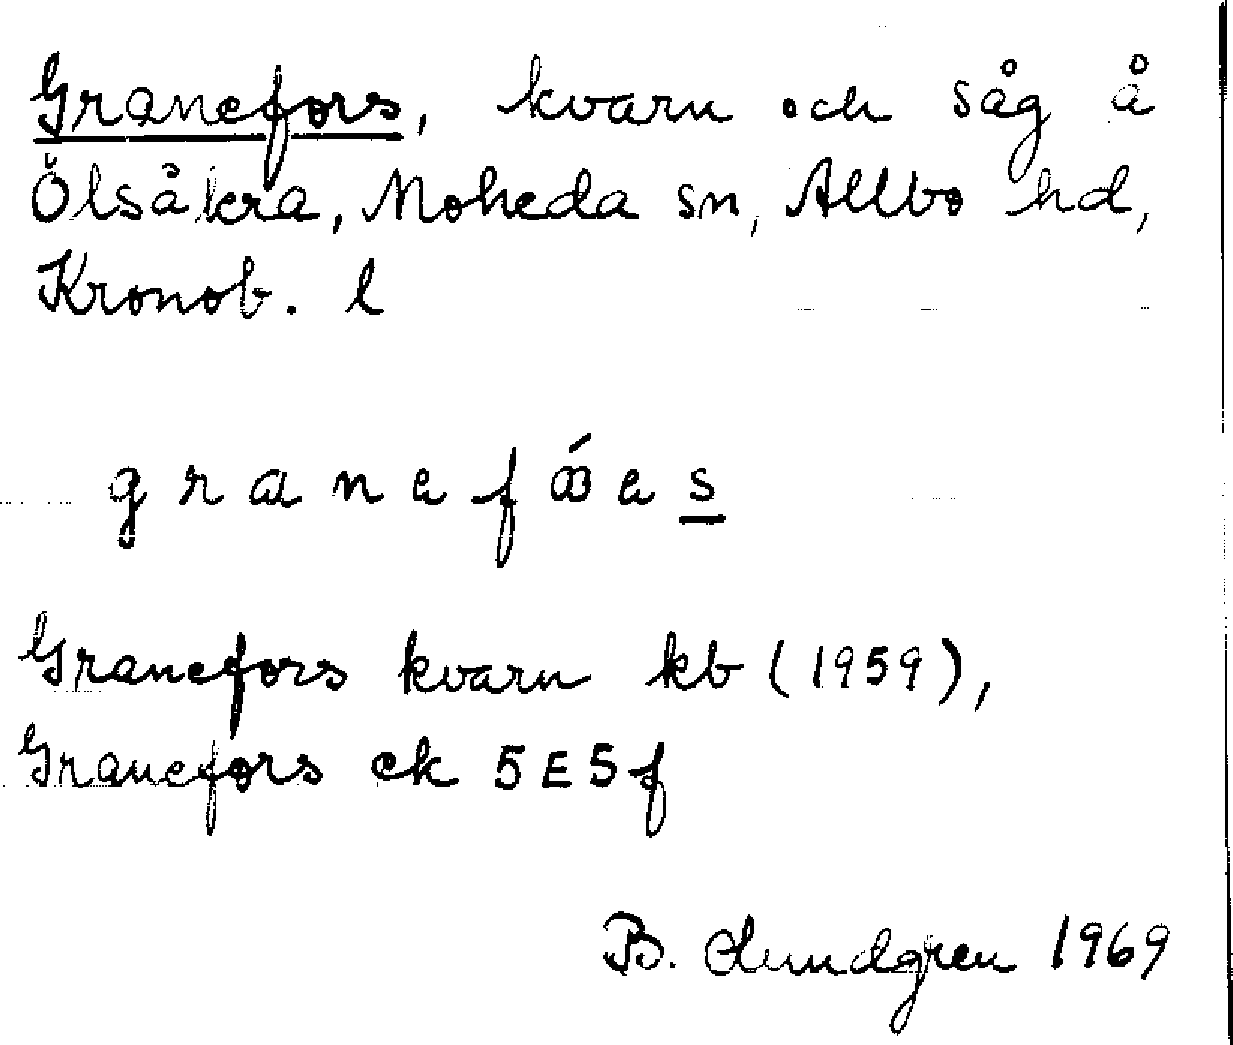 Granefors, kvarn och såg å
Ölsåkra, Moheda sn, Allbo hd,
Kronob. l
Granefors kvarn kb (1959),
Granefors ek 5E5f
B. Lundgren 1969